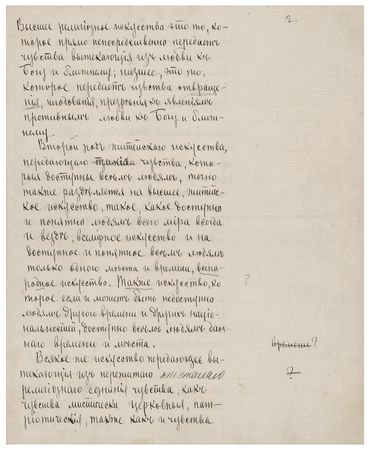 2.
Высшее религіозное искусства это то, ко-
торое прямо непосредственно передаетъ
чувства вытекающія изъ любви къ
Богу и ближнему; низшее, это то,
которое передаетъ чувства отвраще-
нія, негодованія, презрѣнія къ явленіямъ
противнымъ любви къ Богу и ближ-
нему.
Второй родъ житейскаго искусства,
передающаго чувства, кото-
рыя доступны всѣмъ людямъ, точно
также раздѣляется на высшее, житей-
ское искусство, такое, какое доступно
и понятно людямъ всего міра всегда
и вездѣ, всемірное искусство и на
доступное и понятное всѣмъ людямъ
только одного мѣста и времени, всена-
родное искусство. Также искусство, ко-
?
торое если и можетъ быть недоступно
людямъ другого времени и другихъ націо-
нальностей, доступно всѣмъ людямъ дан-
наго времени и мѣста.
времени?
Всякое же искусство передающее вы-
?
текающія изъ пережитаго
религіознаго сознанія чувства, какъ
чувства мистически церковныя, пат-
ріотическія, также какъ и чувства